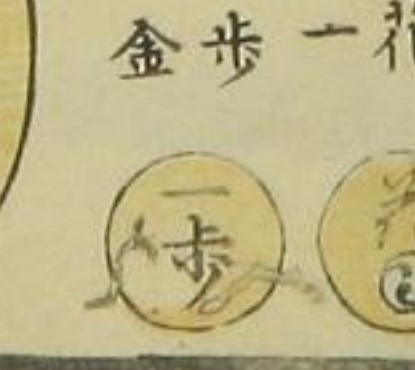 金歩一
一歩